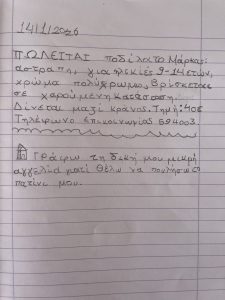 14/1/2026
ΠΩΛΕΙΤΑΙ ποδίλατο Μάρκας:
αστραπη, για ηλικίες 9-14 ετών,
χρώμα πολύχρωμο, βρίσκεται
σε χαρούμενη κατάσταση.
Δίνεται μαζί κρανος. Τιμή: 40€
Τηλέφωνο επικοινωνίας 694003.
Γράφω τη δική μου μικρή
αγγελία γιατί θέλω να πουλήσω το
πατίνι μου.